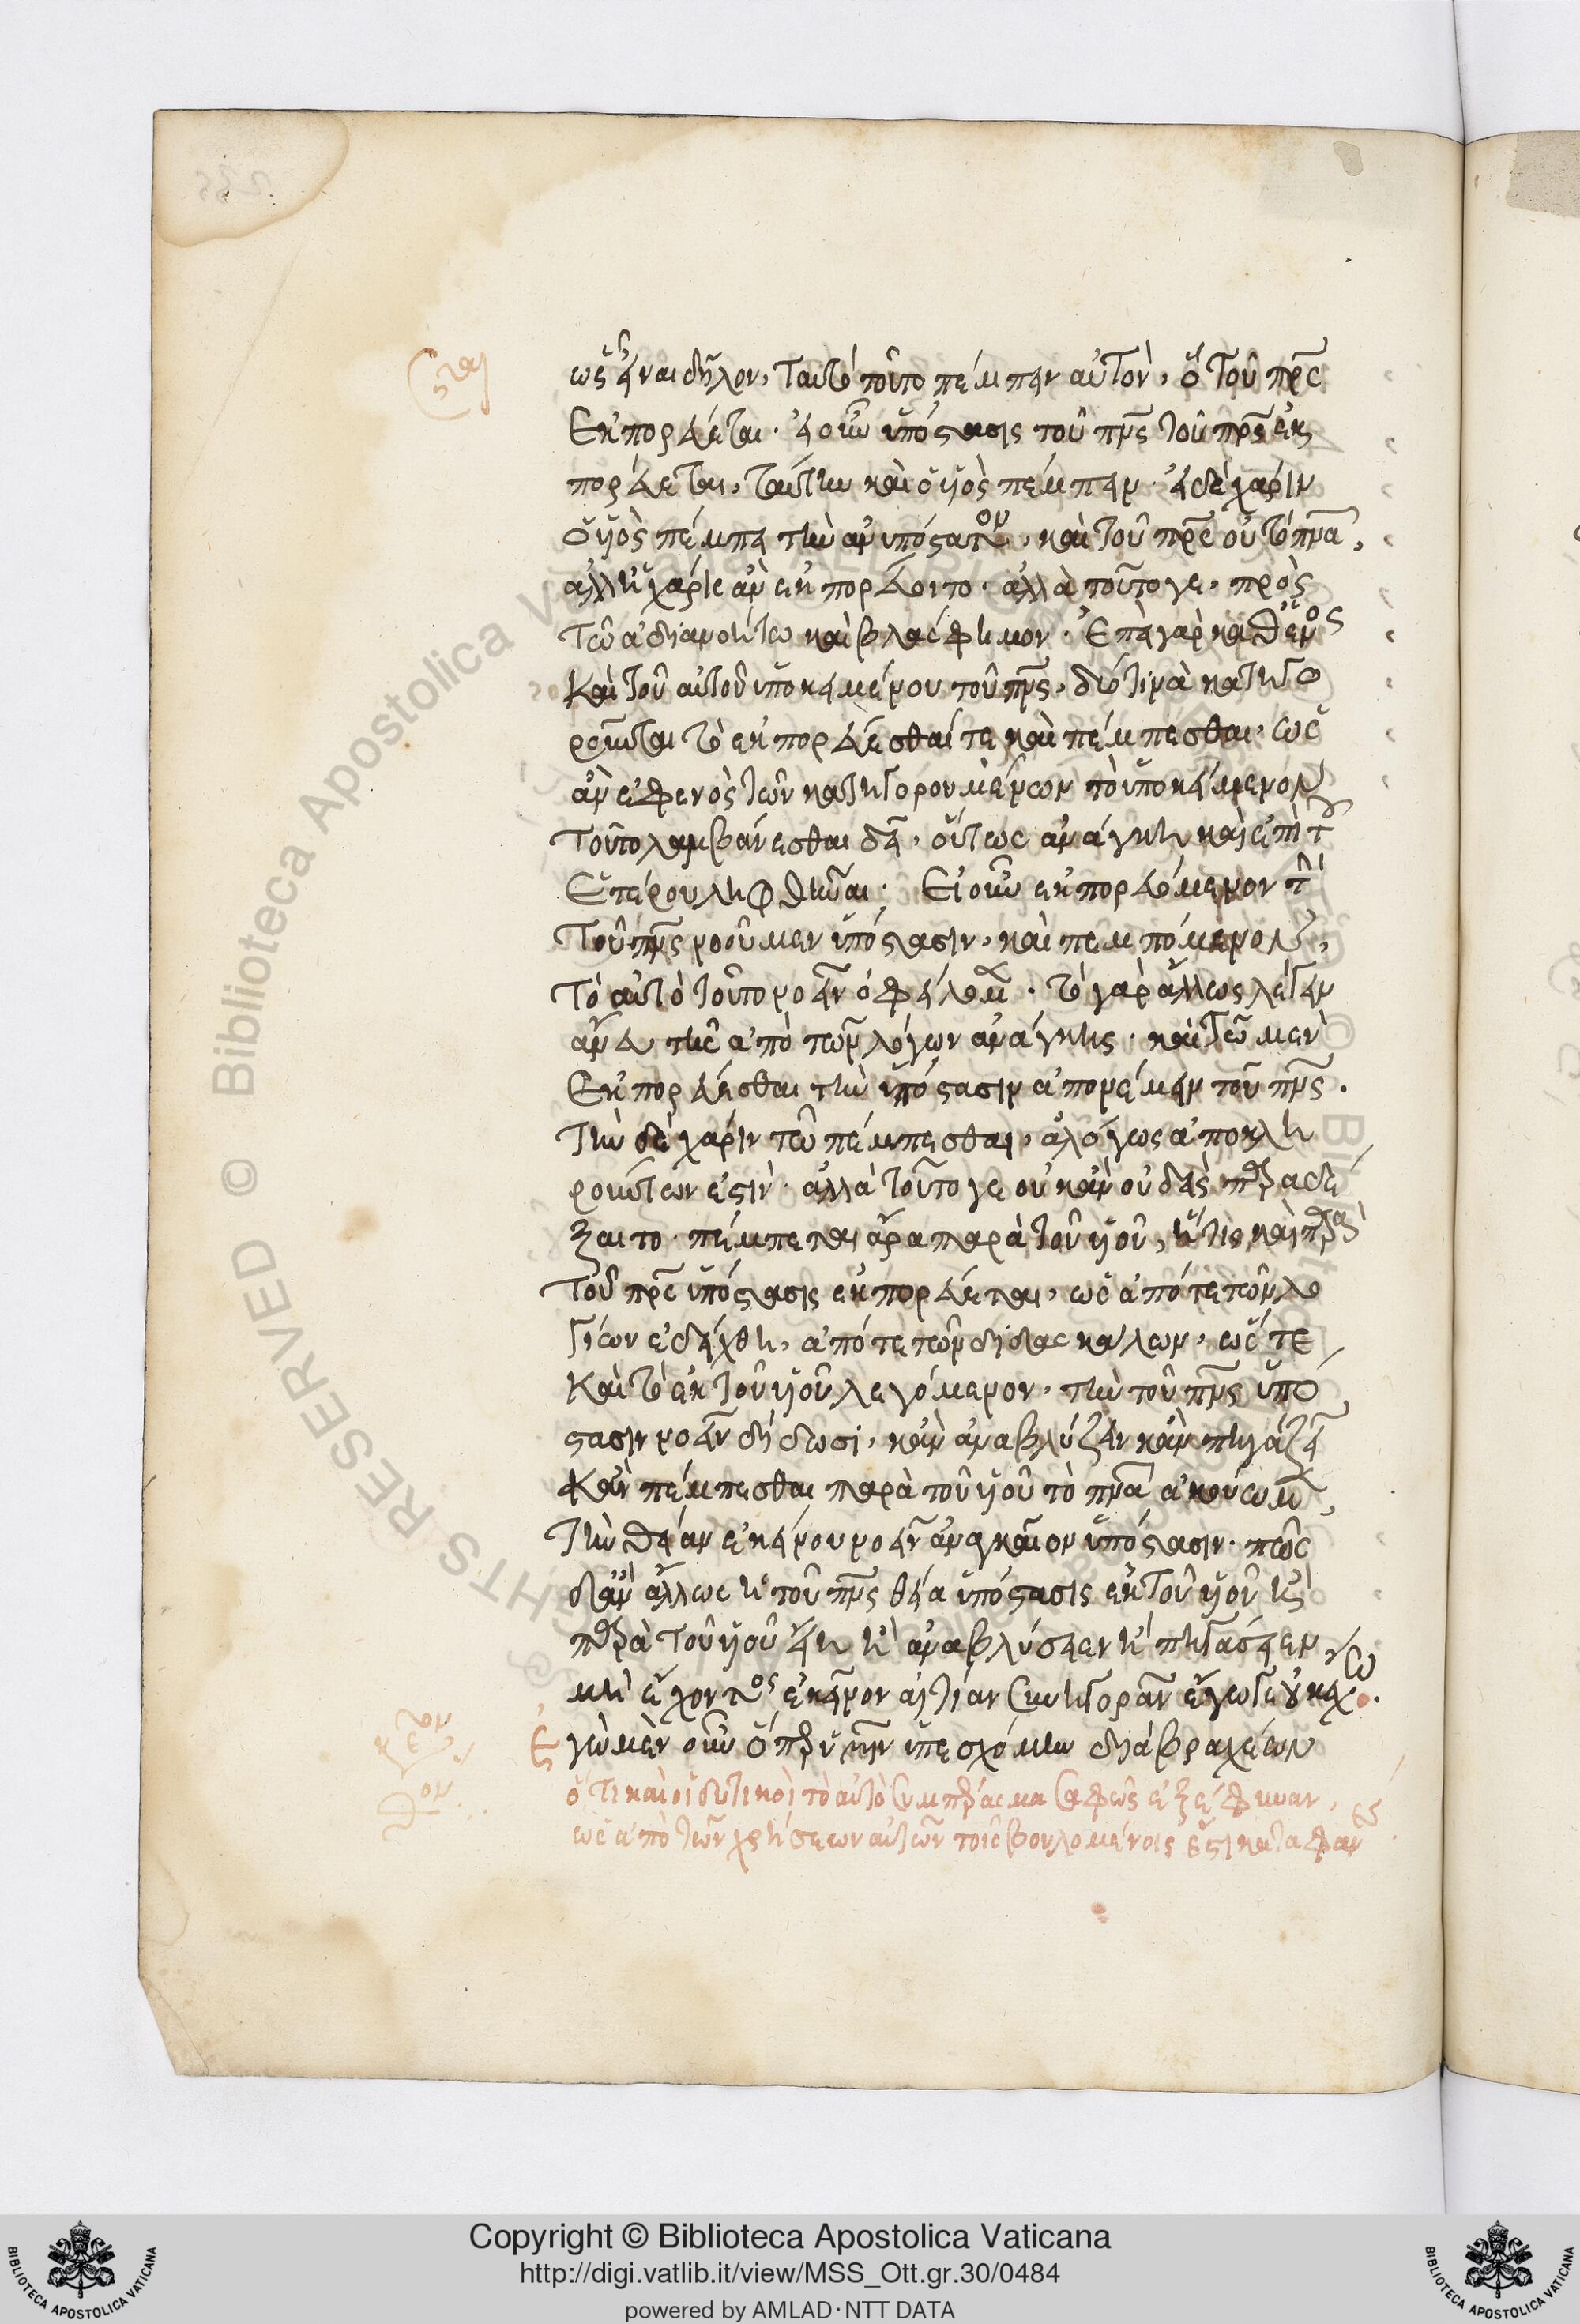 ὡς εἶναι δῆλον, ταυτὸ τοῦτο πέμπειν αὐτὸν, ὃ τοῦ πρς
ἐκπορεύεται. εἰ οὖν ὑπόστασις τοῦ πνς τοῦ πρς ἐκ
πορεύεται, ταύτην καὶ ὁ υἱὸς πέμπει. εἰ δὲ χάριν
ὁ υἱὸς πέμπει τὴν ἀνυπόστατον, καὶ τοῦ πρς οὐ τὸ πνα,
ἀλλ' ἡ χάρις ἂν ἐκπορεύοιτο. ἀλλὰ τοῦτό γε, πρὸς
τῷ ἀδιανοήτῳ καὶ βλάσφημον. Ἐπεὶ γὰρ καθ' ἑνὸς
καὶ τοῦ αὐτοῦ ὑποκειμένου τοῦ πνς, δύο τινὰ κατηγο
ροῦνται τὸ ἐκπορεύεσθαί τε καὶ πέμπεσθαι, ὡς
ἂν ἐφ' ἑνὸς τῶν κατηγορουμένων τὸ ὑποκείμενον
τοῦτο λαμβάνεσθαι δεῖ, οὕτως ἀνάγκη καὶ ἐπὶ τοῦ
ἑτέρου ληφθῆναι. Εἰ οὖν ἐκπορευόμενον τὴν
τοῦ πνς νοοῦμεν ὑπόστασιν, καὶ πεμπόμενον,
τὸ αὐτὸ τοῦτο νοεῖν ὀφείλομεν. τὸ γὰρ ἄλλως λέγειν
ἄνευ τῆς ἀπὸ τῶν λόγων ἀνάγκης. καὶ τῷ μὲν
ἐκπορεύεσθαι τὴν ὑπόστασιν ἀπονέμειν τοῦ πνς.
τὴν δὲ χάριν τῷ πέμπεσθαι, ἀλόγως ἀποκλη
ρούντων ἐστίν. ἀλλὰ τοῦτό γε οὐκ ἂν οὐδεὶς παραδέ
ξαιτο. πέμπεται ἄρα παρὰ τοῦ υἱοῦ, ἥτις καὶ παρὰ
τοῦ πρς ὑπόστασις ἐκπορεύεται, ὡς ἀπό τε τῶν λο
γίων ἐδείχθη, ἀπό τε τῶν διδασκάλων, ὥς τε
καὶ τὸ ἐκ τοῦ υἱοῦ λεγόμενον, τὴν τοῦ πνς ὑπό
στασιν νοεῖν δίδωσι, κἂν ἀναβλύζειν κἂν πηγάζειν
κἂν πέμπεσθαι παρὰ τοῦ υἱοῦ τὸ πνα ἀκούωμεν,
τὴν θείαν ἐκείνου νοεῖν ἀναγκαῖον ὑπόστασιν. πῶς
δ' ἂν ἄλλως ἡ τοῦ πνς θεία ὑπόστασις ἐκ τοῦ υἱοῦ ἢ
παρὰ τοῦ υἱοῦ εἴη ἢ ἀναβλύσειεν ἢ πηγάσειεν,
μὴ ἔχοντος ἐκεῖνον αἰτίαν συνηγορεῖν ἔγωγε οὐκ ἔχω.
Ἐγὼ μὲν οὖν ὅπερ ὑμῖν ὑπεσχόμην διὰ βραχέων
ὅτι καὶ οἱ δυτικοὶ τὸ αὐτὸ συμπέρασμα σαφῶς ἐξέφηναν,
ὡς ἀπὸ τῶν χρήσεων αὐτῶν τοῖς βουλομένοις ἔστι καταφανές
Copyright © Biblioteca Apostolica Vaticana
http://digi.vatlib.it/view/MSS_Ott.gr.30/0484
powered by AMLAD·NTT DATA